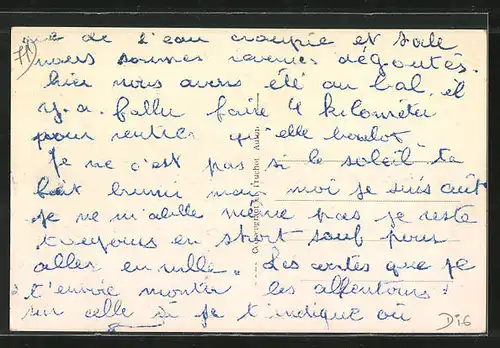 que de l'eau croupie et sale
nous sommes revenus dégoutés.
hier nous avons été au bal, et
y. a. fallu faire 4 kilomèter
pour rentrer qu'elle boulot
Je ne c'est pas si le soleil ta
fait brunir mais moi je suis cuit
je ne m'abille même pas je reste
toujours en short sauf pour
aller en ville. Les cartes que je
t'envoie montre les allentours.
sur celle si je t'indique où
D16